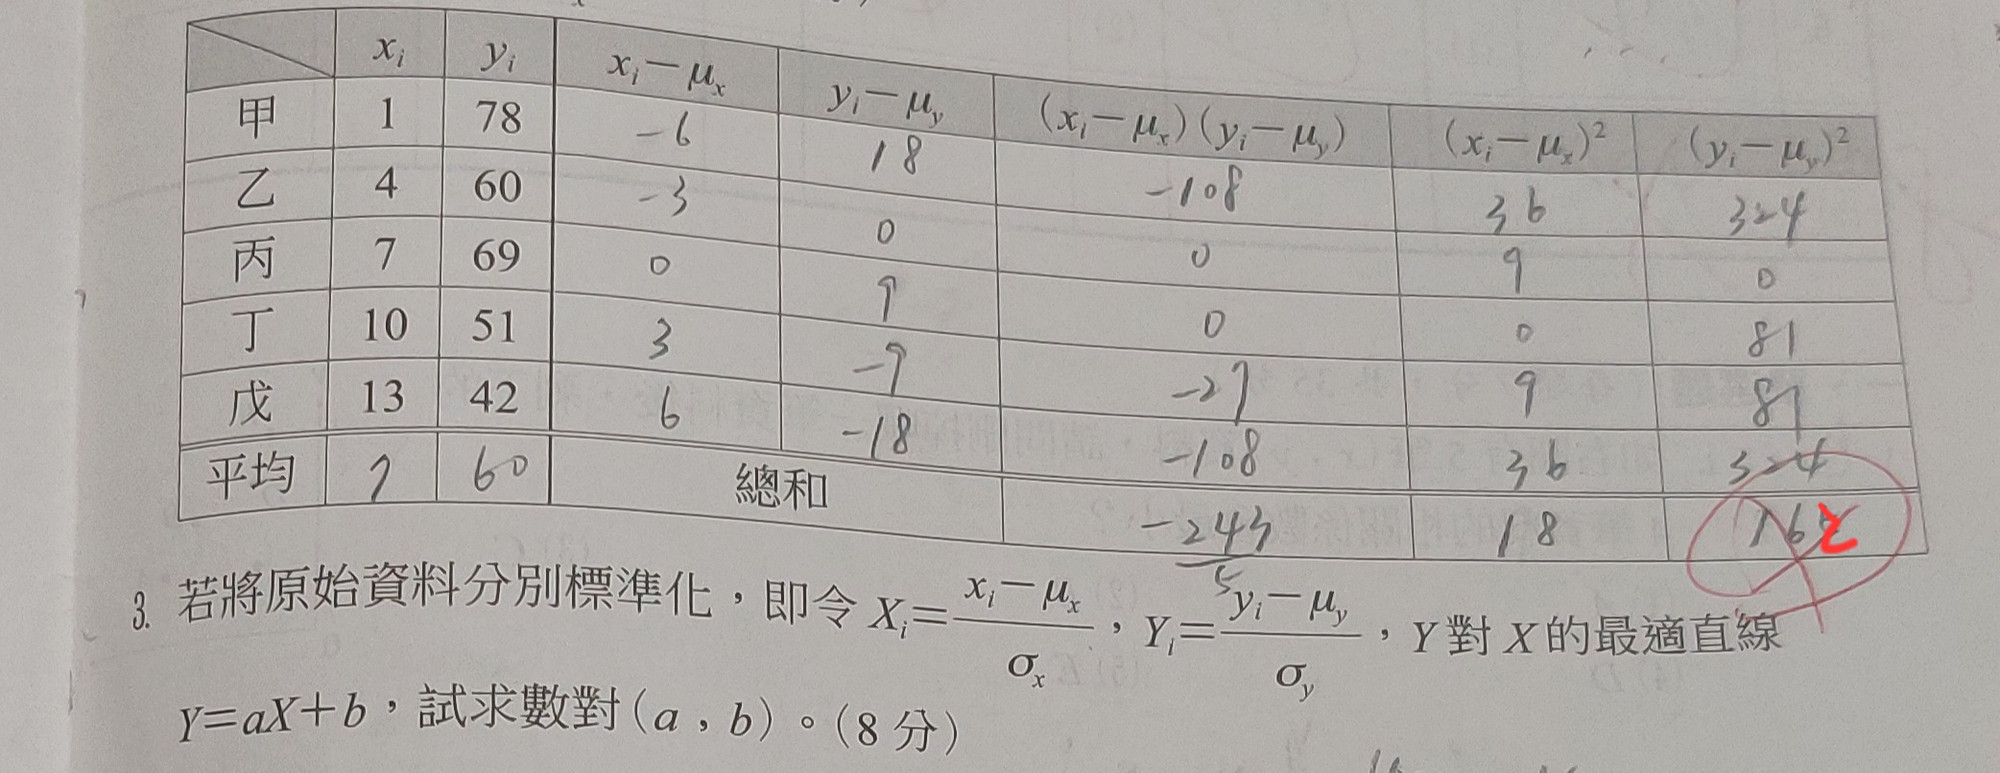 xᵢ yᵢ xᵢ−μₓ yᵢ−μᵧ (xᵢ−μₓ)(yᵢ−μᵧ) (xᵢ−μₓ)² (yᵢ−μᵧ)²
甲 1 78 −6 18 −108 36 324
乙 4 60 −3 0 0 9 0
丙 7 69 0 9 0 0 81
丁 10 51 3 −9 −27 9 81
戊 13 42 6 −18 −108 36 324
平均 7 60 總和 −243/5 18 162
3. 若將原始資料分別標準化，即令 Xᵢ=(xᵢ−μₓ)/σₓ，Yᵢ=(yᵢ−μᵧ)/σᵧ，Y 對 X 的最適直線
Y=aX+b，試求數對(a，b)。(8 分)